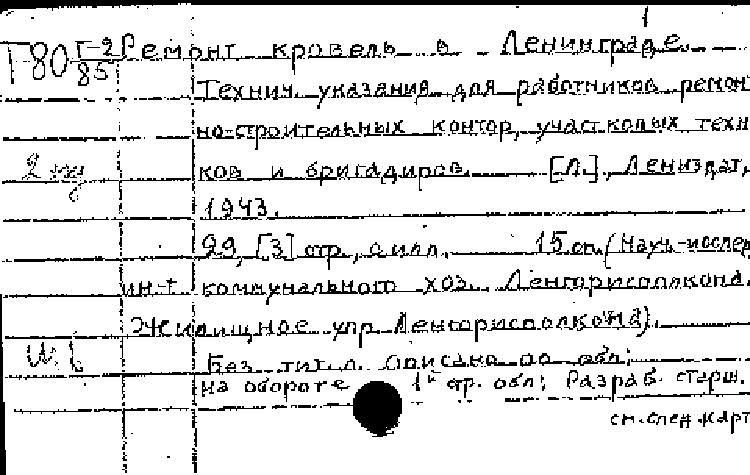 1
Т80 Г-2/85 Ремонт кровель в Ленинграде.
Технич. указания для работников ремонт
но-строительных контор, участковых техн
2 экз
ков и бригадиров. [Л.], Лениздат,
1943.
99, [3] стр., с илл. 15 см. (Науч.-исслед
ин-т коммунального хоз. Ленгорисполкома.
Жилищное упр. Ленгорисполкома).
Без тит. л. Описано по обл;
на обороте 1й стр. обл; Разраб. старш.
см. след. карт